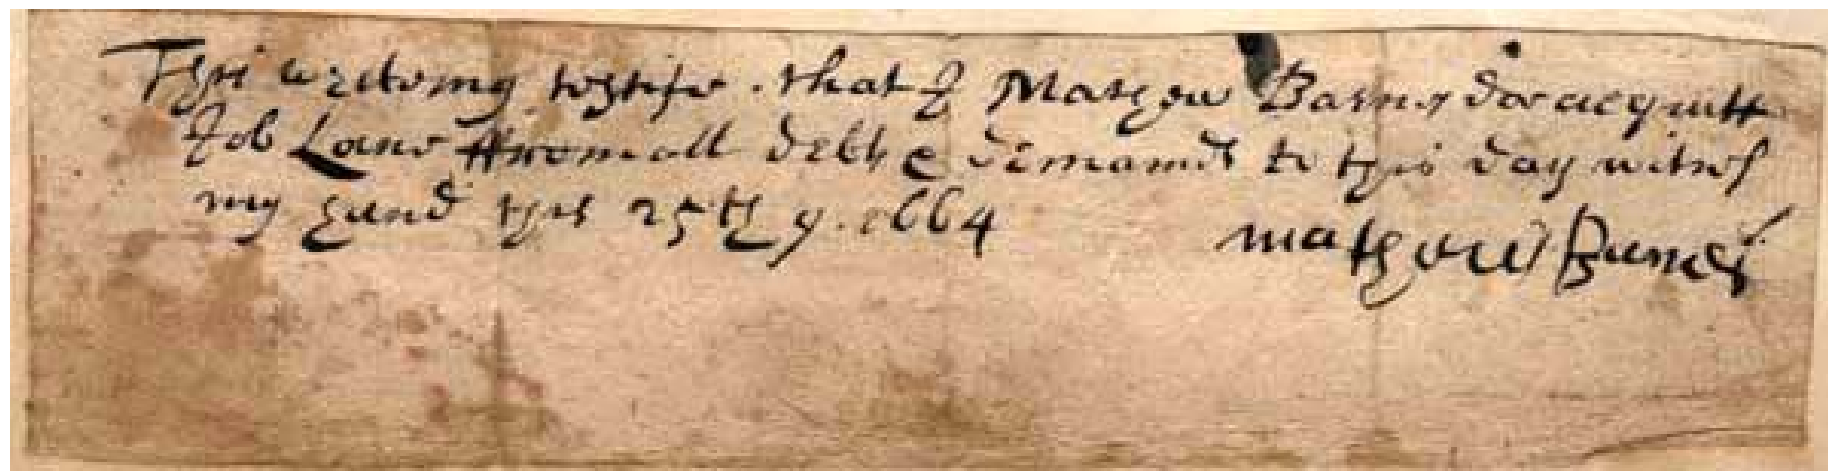 This writeing testifie that I Mathew Barnes doe acquitt
Job Lane ffrom all debts & demands to this day witnes
my hand this 25th 9. 1664
mathew Barnes